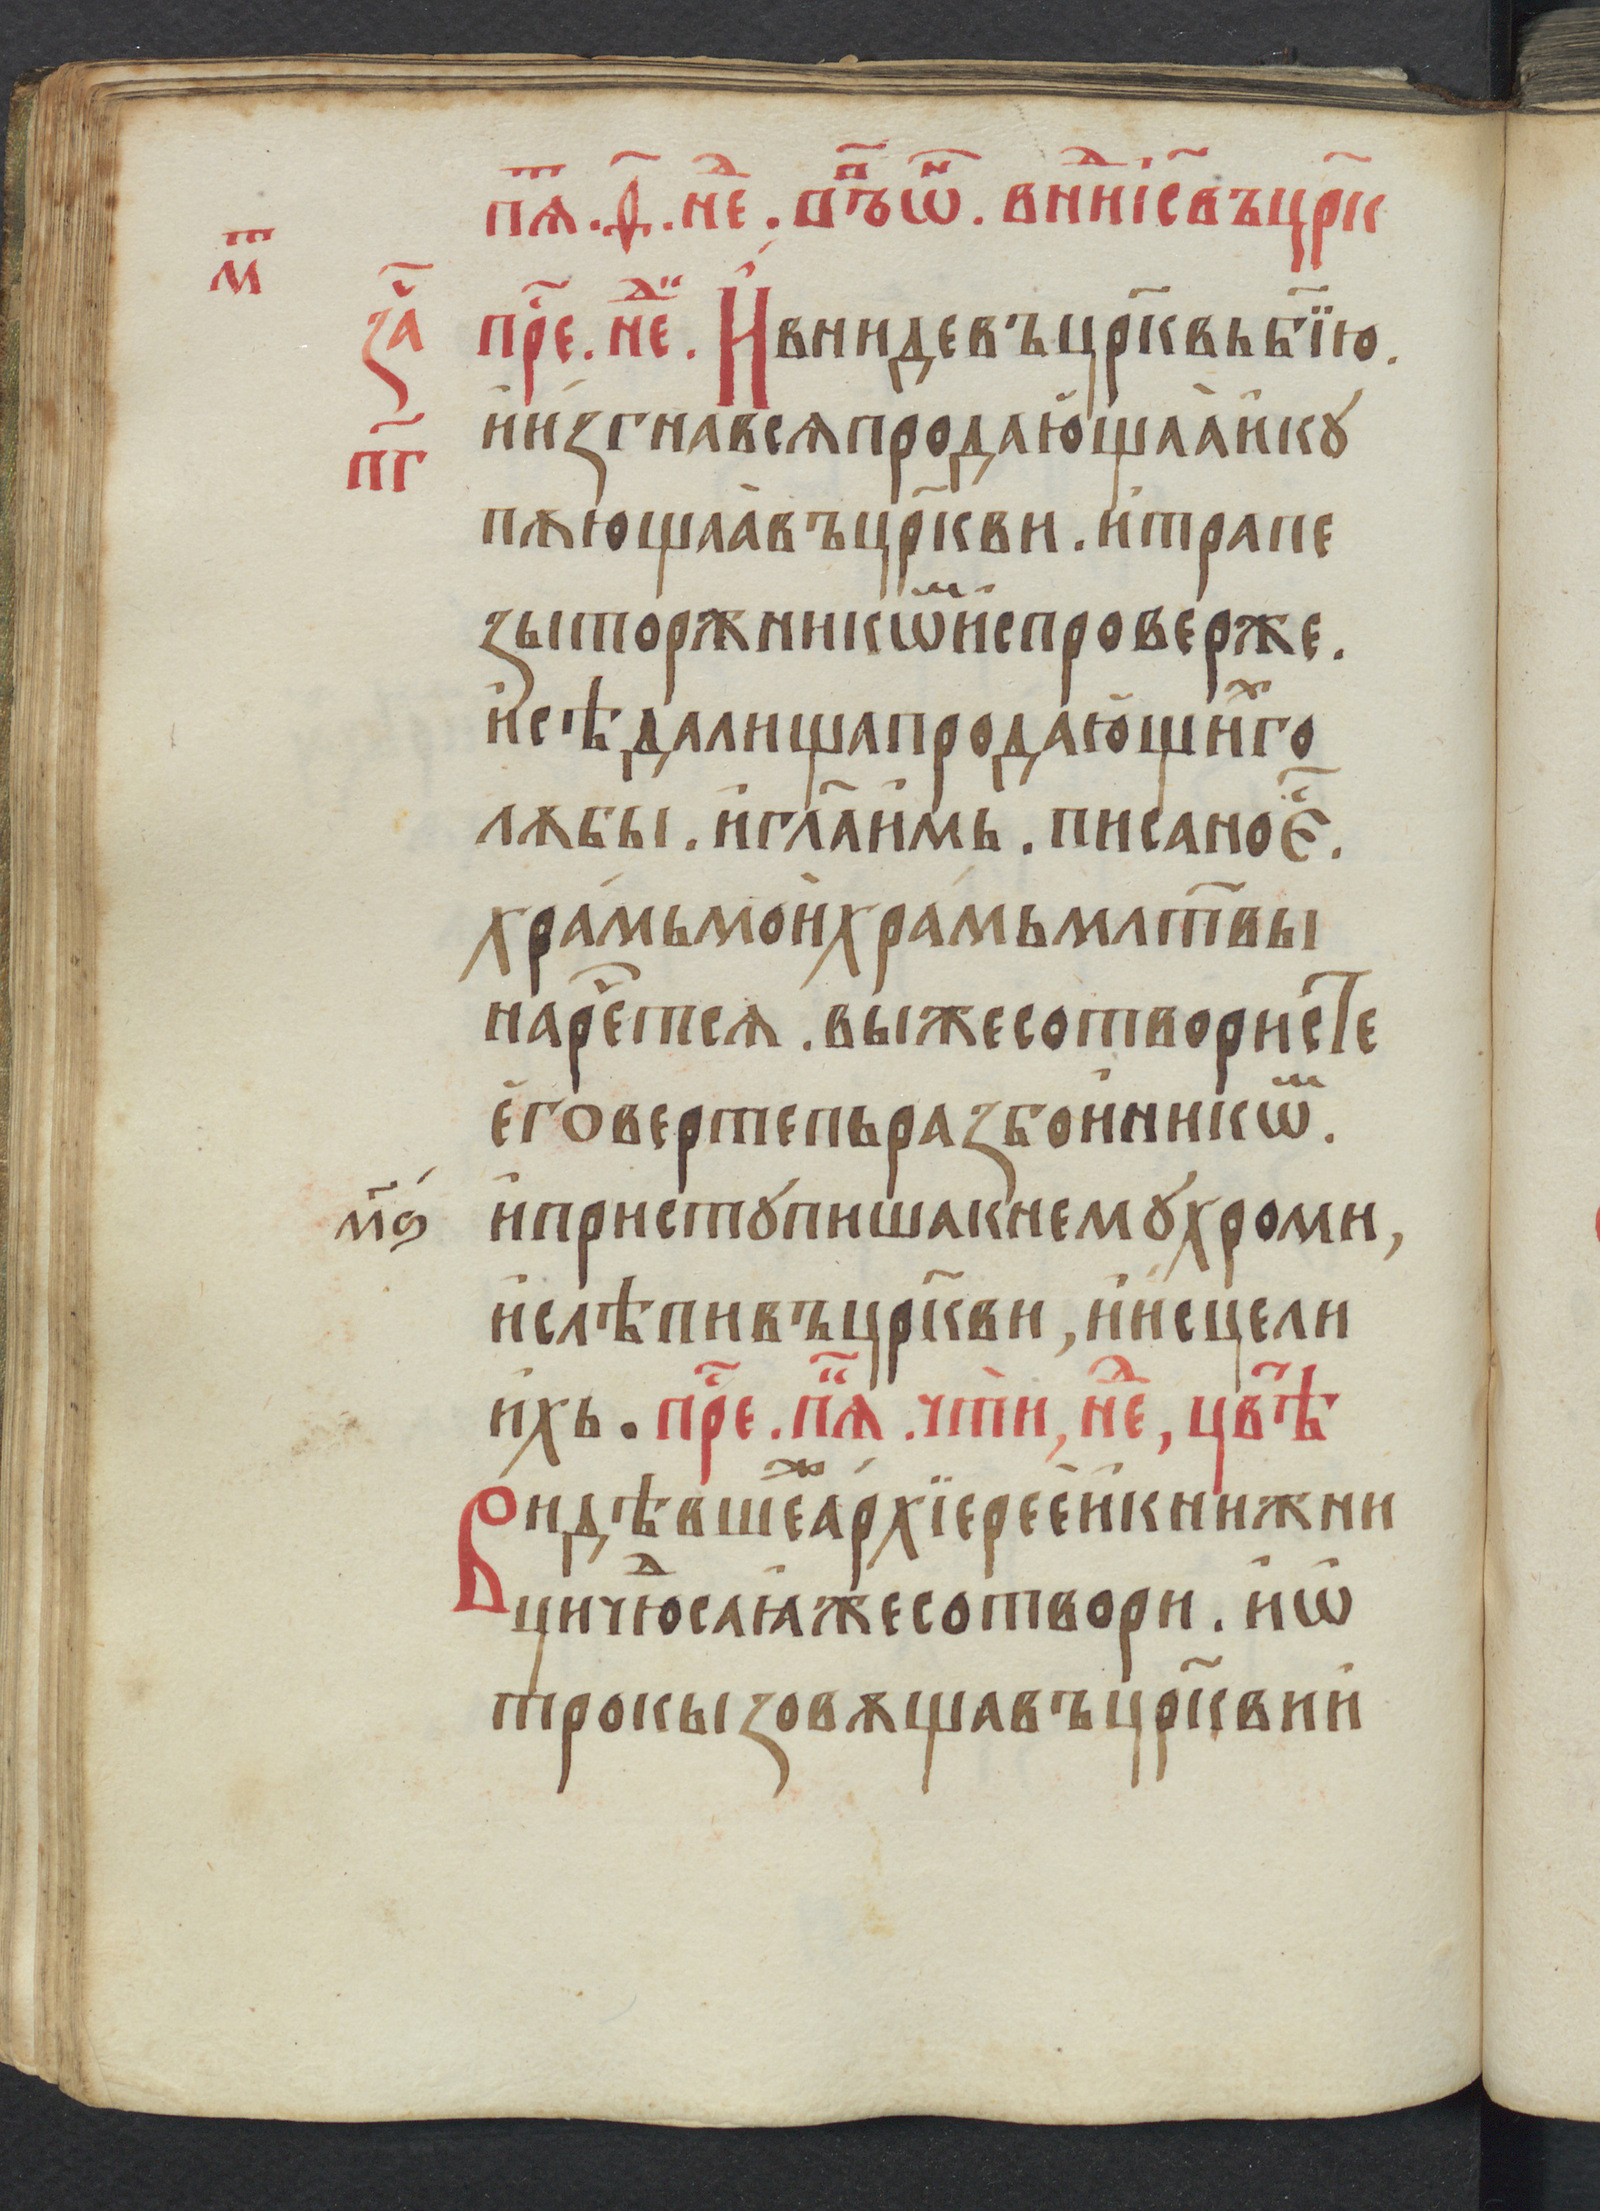 пѧⷮ. д҃. неⷣ. поⷫ҇ѡⷩ҇. вниⷣ іс҃ въ цр҃к
мⷮ
за҃ⷱ
пг҃
преⷭ҇. неⷣⷧ. И҆ вниде въ цр҃квь бж҃їю.
и҆ и҆згна всѧ продаю҆щаѧ и҆ кꙋ
пѫющаѧ въ цр҃кви. и҆ трапе
зы торжникѡⷨ и҆спроверже.
и҆ сѣдалища продаю҆щиⷯ го
лѫбы. и҆ гл҃а и҆мь. писано є҆ⷭ҇.
хра́мь мои҆ хра́мь млт҃вы
наречⷷ҇тсѧ. вы же сотвористе
е҆го вертепь разбои҆никѡⷨ.
мѳ҃
и҆ пристꙋпиша к немꙋ хроми,
и҆ слѣпи въ цр҃кви, и҆ и҆сцели
и҆хь. преⷭ҇. пѧⷮ. чти, неⷣ, цвѣⷮ
Видѣвшеⷤ а҆рхїерее и҆ книжни
ци чюⷣсаꙗ҆же сотвори. и҆ ѡ҆
трокы зовѫща въ цр҃кви и҆